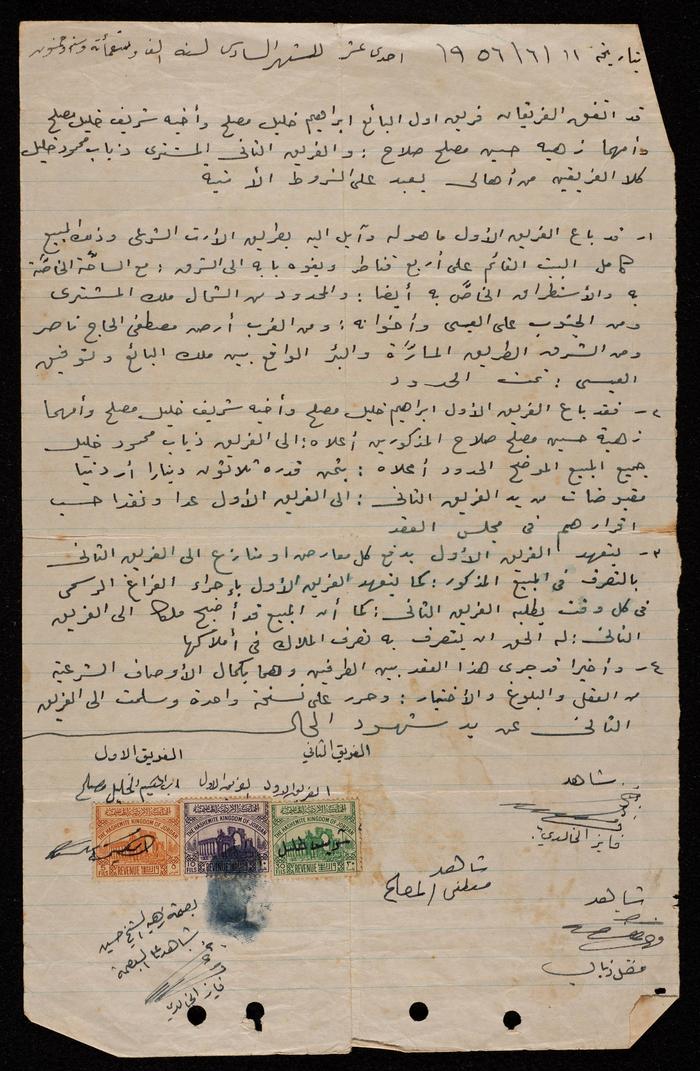 بتاريخ ١١/٦/١٩٥٦ احدى عشر للشهر السادس لسنة الف وتسعمائة وستة وخمسون
قد اتفق الفريقان فريق اول البائع ابراهيم خليل مصلح وأخيه شريف خليل مصلح
وأمهما زهية حسين مصلح صلاح : والفريق الثاني المشتري ذياب محمود خليل
كلا الفريقين من أهالي يعبد على الشروط الأتية
١- قد باع الفريق الأول ما هو له وآيل اليه بطريق الأرث الشرعي وذلك المبيع
كامل البيت القائم على أربع قناطر ويفوه بابه الى الشرق : مع الساحة الخاصة
به والأستطراق الخاص به أيضا : والمحدود من الشمال ملك المشتري
ومن الجنوب على العيسى وأخوانه : ومن الغرب أرض مصطفى الحاج ناصر
ومن الشرق الطريق المارة والبئر الواقع بين ملك البائع وتوفيق
العيسى : تمت الحدود
٢- فقد باع الفريق الأول ابراهيم خليل مصلح وأخيه شريف خليل مصلح وأمهما
زهية حسين مصلح صلاح المذكورين أعلاه : الى الفريق ذياب محمود خليل
جميع المبيع الموضح الحدود أعلاه : بثمن قدره ثلاثون دينارا أردنيا
مقبوضات من يد الفريق الثاني : الى الفريق الأول عدا ونقدا حسب
اقرارهم في مجلس العقد
٣- يتعهد الفريق الأول بدفع كل معارض او منازع الى الفريق الثاني
بالتصرف في المبيع المذكور : كما يتعهد الفريق الأول بإجراء الفراغ الرسمي
في كل وقت يطلبه الفريق الثاني : كما أن المبيع قد أضبح ملكا الى الفريق
الثاني : له الحق ان يتصرف به تصرف الملاك في أملاكها
٤- وأخيرا قد جرى هذا العقد بين الطرفين وهما بكمال الأوصاف الشرعية
من العقل والبلوغ والأختيار : وحرر على نسخة واحدة وسلمت الى الفريق
الثاني عن يد شهود الحال
الفريق الثاني الفريق الاول
الفريق الاول الفريق الاول ابراهيم الخليل مصلح
THE HASHEMITE KINGDOM OF JORDAN
REVENUE
FILS
THE HASHEMITE KINGDOM OF JORDAN
REVENUE
FILS
THE HASHEMITE KINGDOM OF JORDAN
REVENUE
FILS
شريف خليل
شاهد
فايز الخالدي
شاهد
مصطفى المصلح
شاهد
فضل ذياب
بصمة زهية الشيخ حسين
شاهد على البصمة
فايز الخالدي